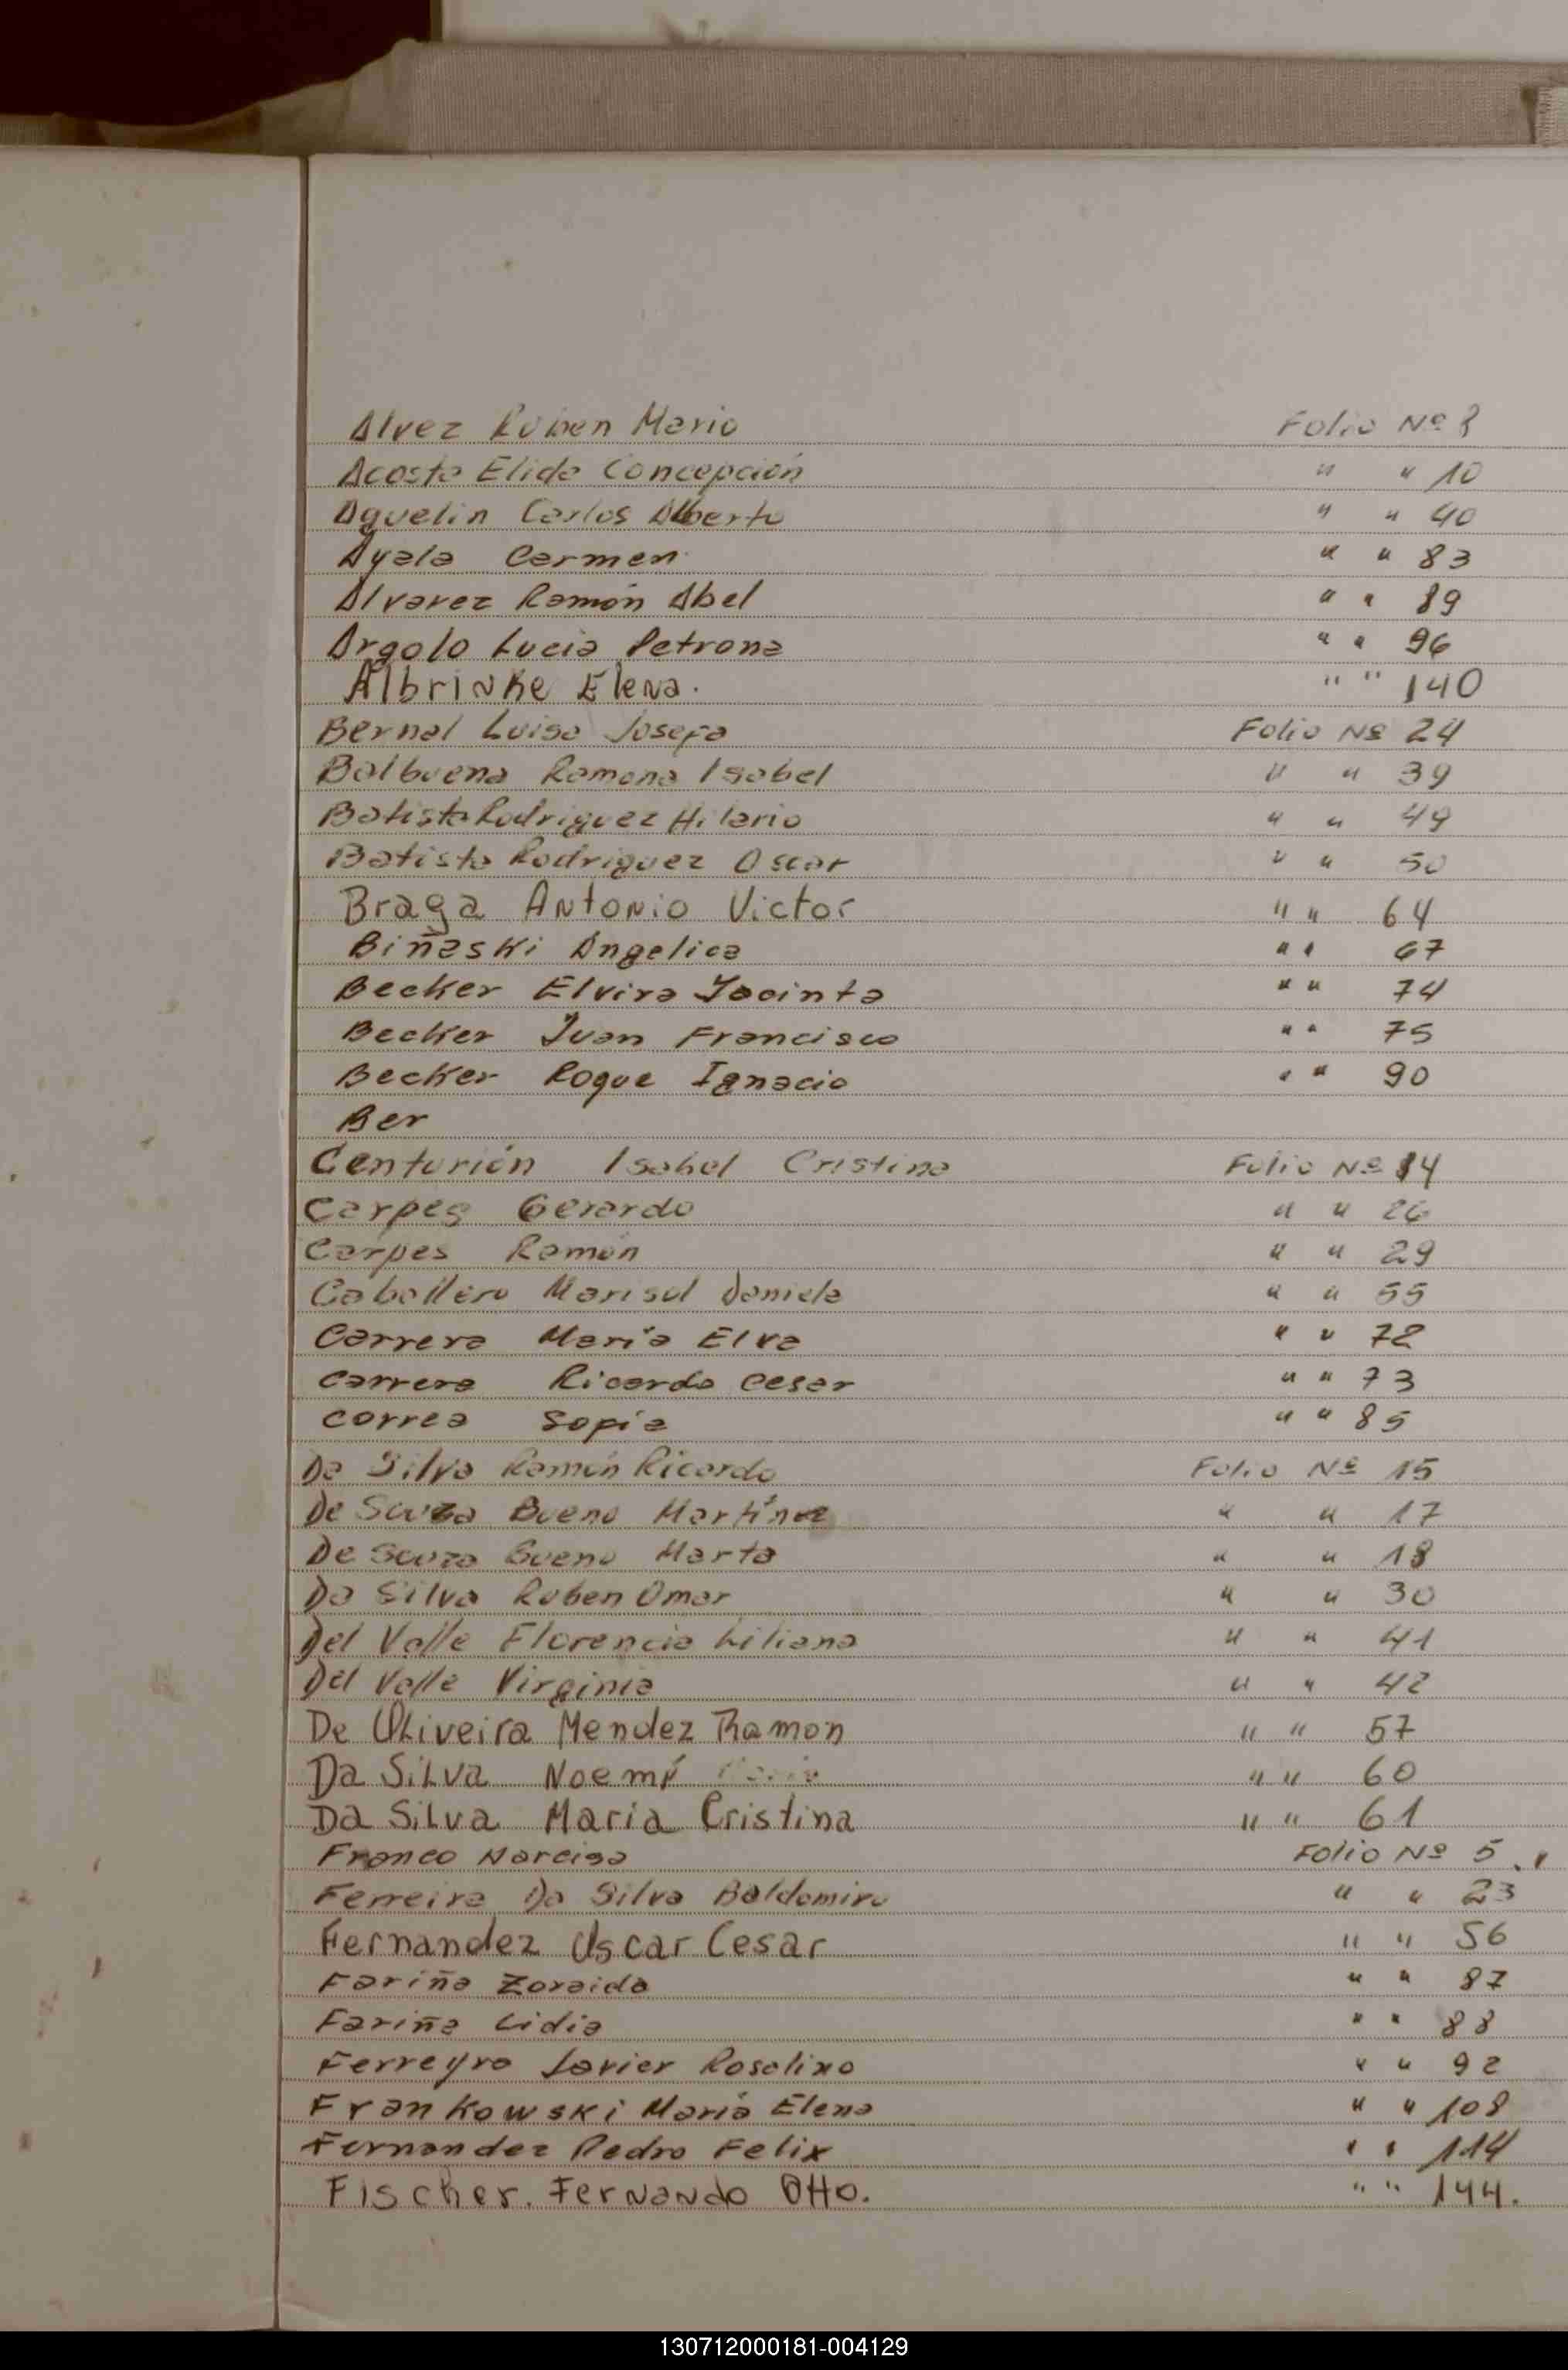 Alvez Rúben Mario Folio Nº 8
Acosta Elida Concepción " " 10
Aguelin Carlos Alberto " " 40
Ayala Carmen " " 83
Alvarez Ramón Abel " " 89
Argolo Lucia Petrona " " 96
Albrinke Elena. " " 140
Bernal Luisa Josefa Folio Nº 24
Balbuena Ramona Isabel " " 39
Batista Rodriguez Hilario " " 49
Batista Rodriguez Oscar " " 50
Braga Antonio Victor " " 64
Biñaski Angelica " " 67
Becker Elvira Jacinta " " 74
Becker Juan Francisco " " 75
Becker Roque Ignacio " " 90
Ber
Centurión Isabel Cristina Folio Nº 14
Carpes Gerardo " " 26
Carpes Ramón " " 29
Caballero Marisol Daniela " " 55
Carrera María Elva " " 72
Carrera Ricardo Cesar " " 73
Correa Sofía " " 85
Da Silva Ramón Ricardo Folio Nº 15
De Souza Bueno Martínez " " 17
De Souza Bueno Marta " " 18
Da Silva Ruben Omar " " 30
Del Valle Florencia Liliana " " 41
Del Valle Virginia " " 42
De Oliveira Mendez Ramon " " 57
Da Silva Noemí " " 60
Da Silva Maria Cristina " " 61
Franco Narcisa Folio Nº 5
Ferreira Da Silva Baldomiro " " 23
Fernandez Oscar Cesar " " 56
Fariña Zoraida " " 87
Fariña Lidia " " 88
Ferreyra Javier Rosalino " " 92
Frankowski María Elena " " 108
Fernandez Pedro Felix " " 114
Fischer. Fernando Otto. " " 144.
130712000181-004129